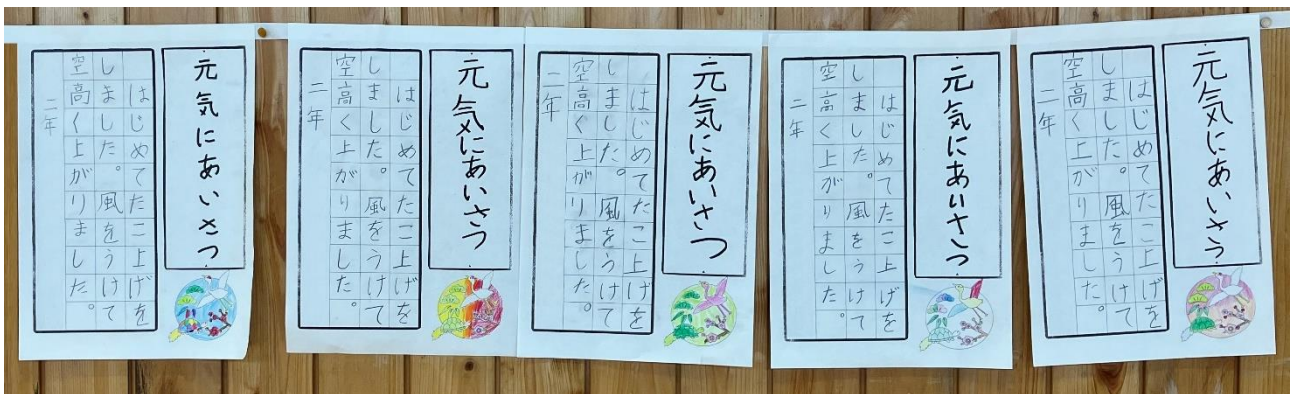 元気にあいさつ
はじめてたこ上げを
しました。風をうけて
空高く上がりました。
二年
元気にあいさつ
はじめてたこ上げを
しました。風をうけて
空高く上がりました。
二年
元気にあいさつ
はじめてたこ上げを
しました。風をうけて
空高く上がりました。
二年
元気にあいさつ
はじめてたこ上げを
しました。風をうけて
空高く上がりました。
二年
元気にあいさつ
はじめてたこ上げを
しました。風をうけて
空高く上がりました。
二年